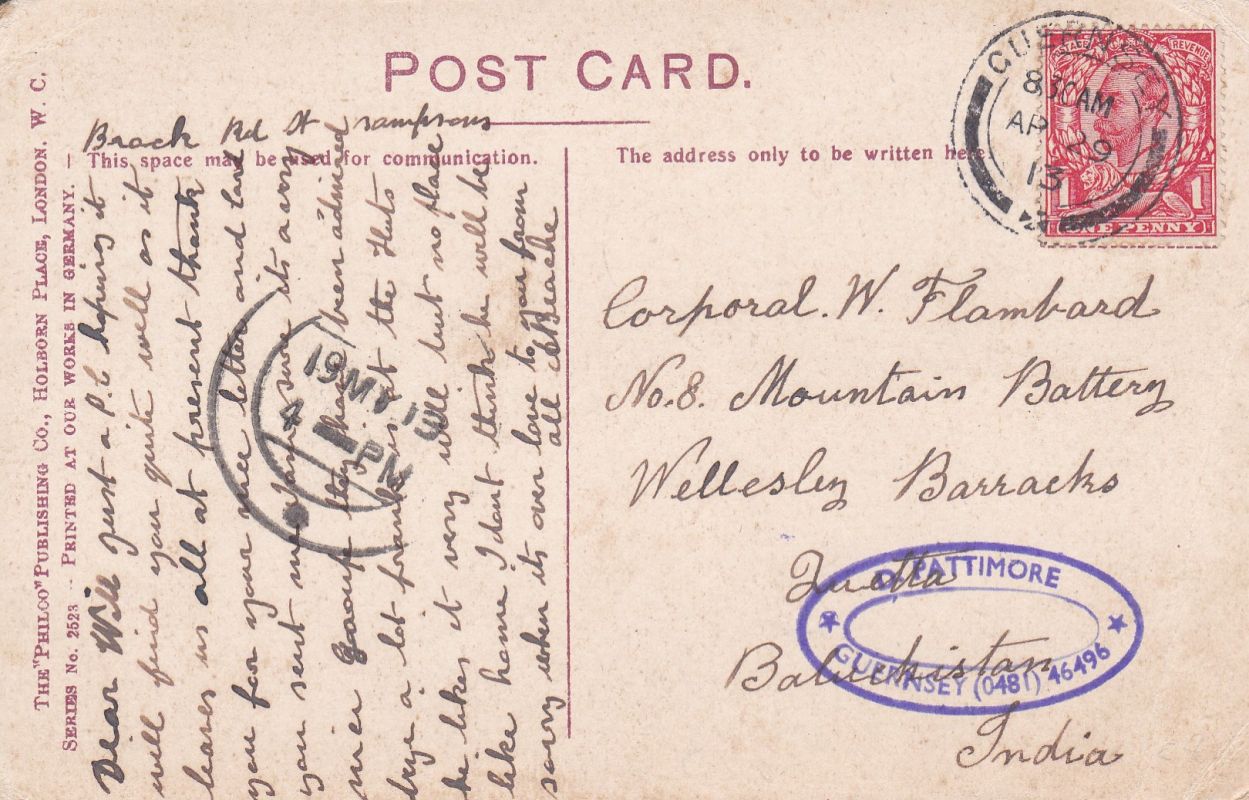 POST CARD.
Brock Rd St Sampsons
This space may be used for communication.
The address only to be written here.
THE "PHILCO" PUBLISHING CO., HOLBORN PLACE, LONDON. W. C.
SERIES No. 2523 - PRINTED AT OUR WORKS IN GERMANY.
Dear Will just a P.C hoping it
will find you quite well as it
leaves us all at present thank
you for your nice letter and card
you sent me its a very
nice they have been admired
a lot the Huts
he likes it very well but no place
like home I dont think he will be
sorry when its over love to you from
all
GUERNSEY
830AM
AP 29
13
POSTAGE REVENUE
1 1
ONE PENNY
19 MY 13
4 PM
Corporal. W. Flambard
No. 8. Mountain Battery
Wellesley Barracks
Quetta
Baluchistan
India
D. PATTIMORE
GUERNSEY (0481) 46496